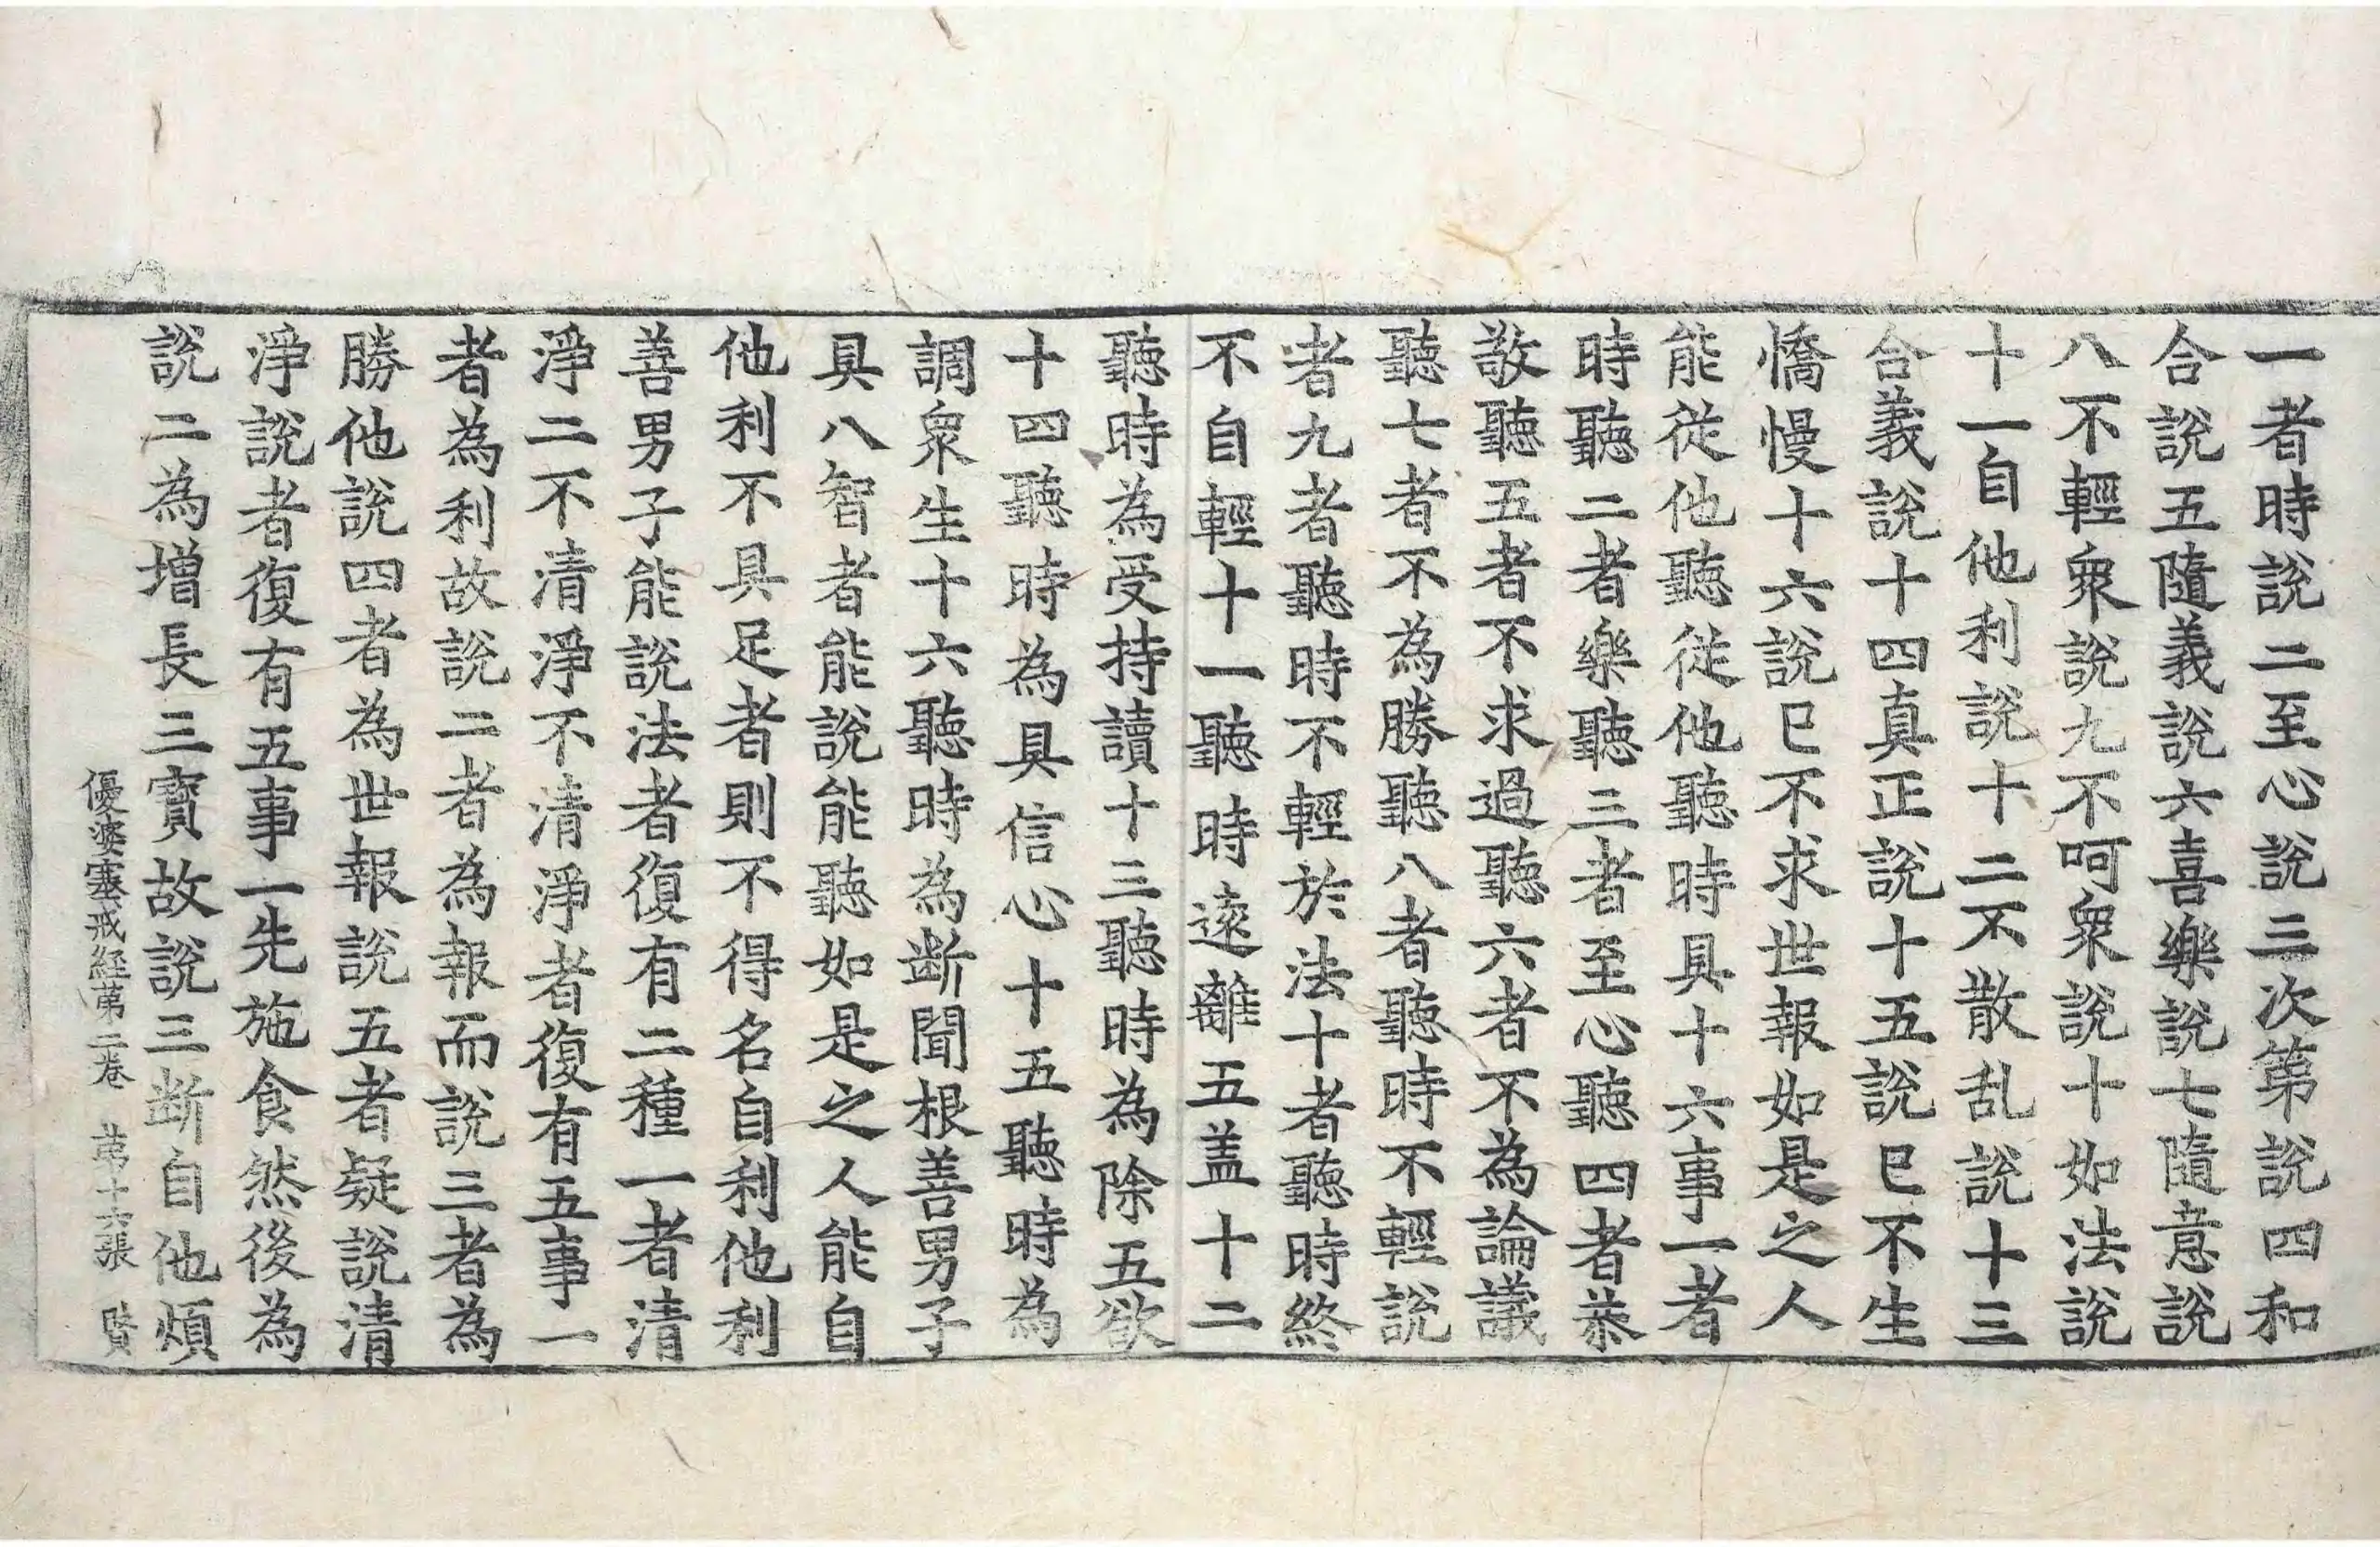 一者時說二至心說三次第說四和
合說五隨義說六喜樂說七隨意說
八不輕衆說九不呵衆說十如法說
十一自他利說十二不散乱說十三
合義說十四真正說十五說已不生
憍慢十六說已不求世報如是之人
能從他聽從他聽時具十六事一者
時聽二者樂聽三者至心聽四者恭
敬聽五者不求過聽六者不為論議
聽七者不為勝聽八者聽時不輕說
者九者聽時不輕於法十者聽時終
不自輕十一聽時遠離五盖十二
聽時為受持讀十三聽時為除五欲
十四聽時為具信心十五聽時為
調衆生十六聽時為断聞根善男子
具八智者能說能聽如是之人能自
他利不具足者則不得名自利他利
善男子能說法者復有二種一者清
淨二不清淨不清淨者復有五事一
者為利故說二者為報而說三者為
勝他說四者為世報說五者疑說清
淨說者復有五事一先施食然後為
說二為增長三寶故說三断自他煩
優婆塞戒経第二卷 第十六張 賢